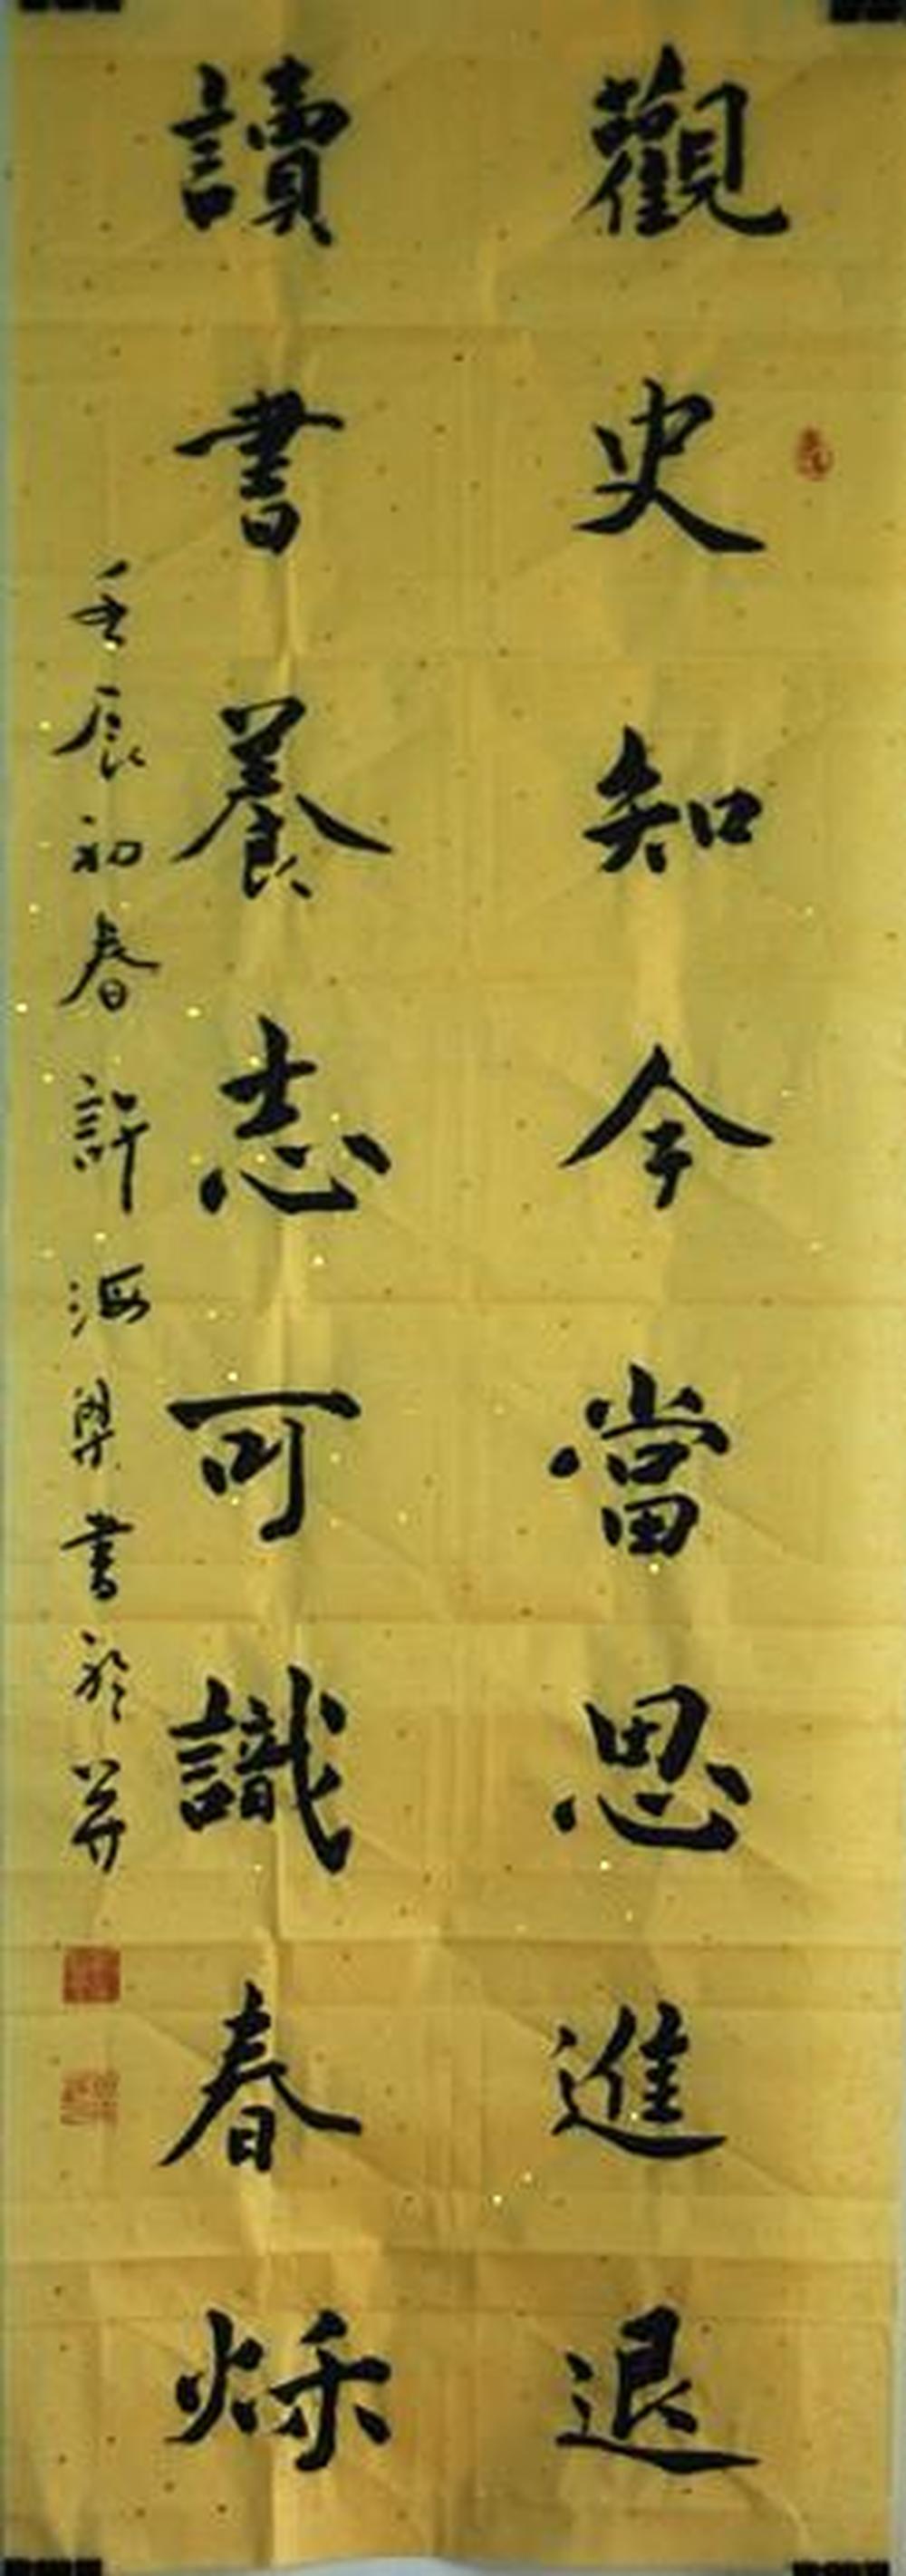 觀史知今當思進退
讀書養志可識春秌
壬辰初春許海渠書於并